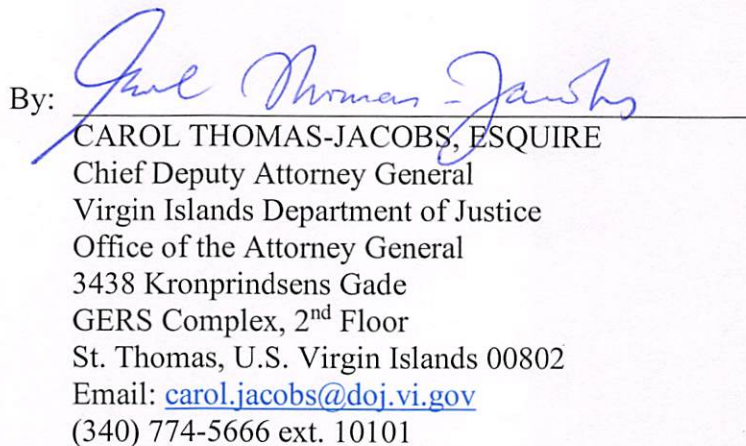 By: Carol Thomas-Jacobs
CAROL THOMAS-JACOBS, ESQUIRE
Chief Deputy Attorney General
Virgin Islands Department of Justice
Office of the Attorney General
3438 Kronprindsens Gade
GERS Complex, 2nd Floor
St. Thomas, U.S. Virgin Islands 00802
Email: carol.jacobs@doj.vi.gov
(340) 774-5666 ext. 10101